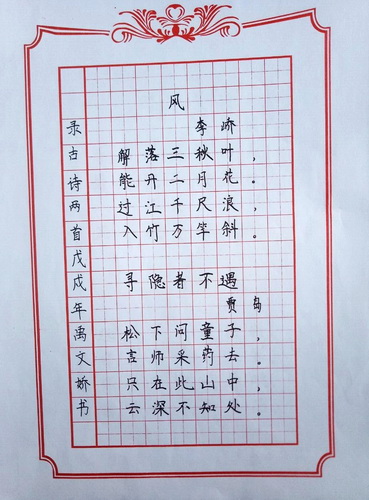 风
李峤
解落三秋叶，
能开二月花。
过江千尺浪，
入竹万竿斜。
寻隐者不遇
贾岛
松下问童子，
言师采药去。
只在此山中，
云深不知处。
录古诗两首戊戌年禹文娇书